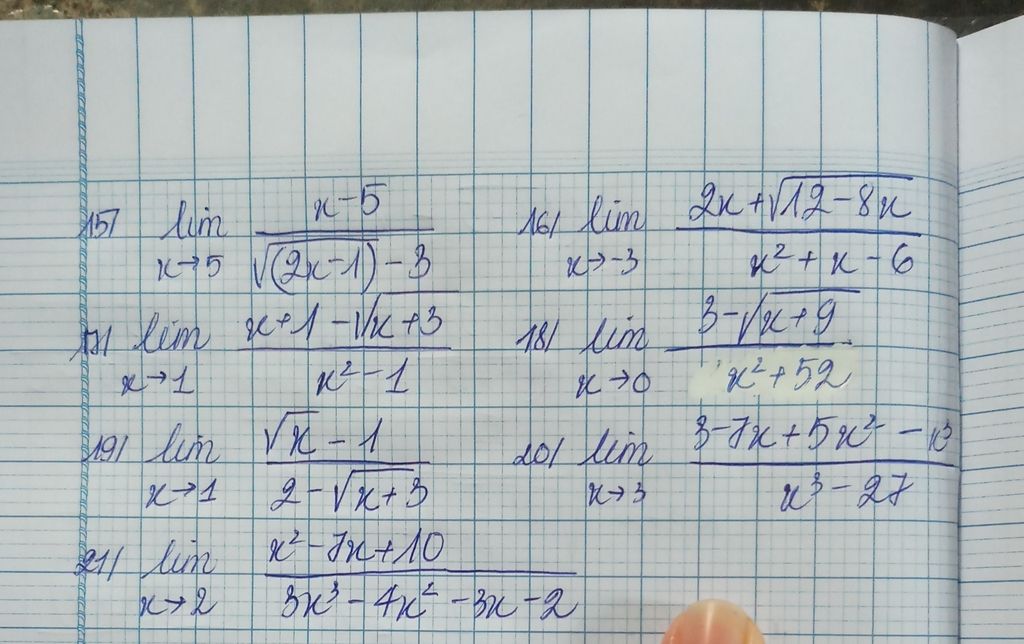 15/ lim x→5 (x-5)/(√(2x-1) - 3)
16/ lim x→-3 (2x+√(12-8x))/(x²+x-6)
17/ lim x→1 (x+1-√(x+3))/(x²-1)
18/ lim x→0 (3-√(x+9))/(x²+52)
19/ lim x→1 (√x - 1)/(2-√(x+3))
20/ lim x→3 (3-7x+5x²-x³)/(x³-27)
21/ lim x→2 (x²-7x+10)/(3x³-4x²-3x-2)